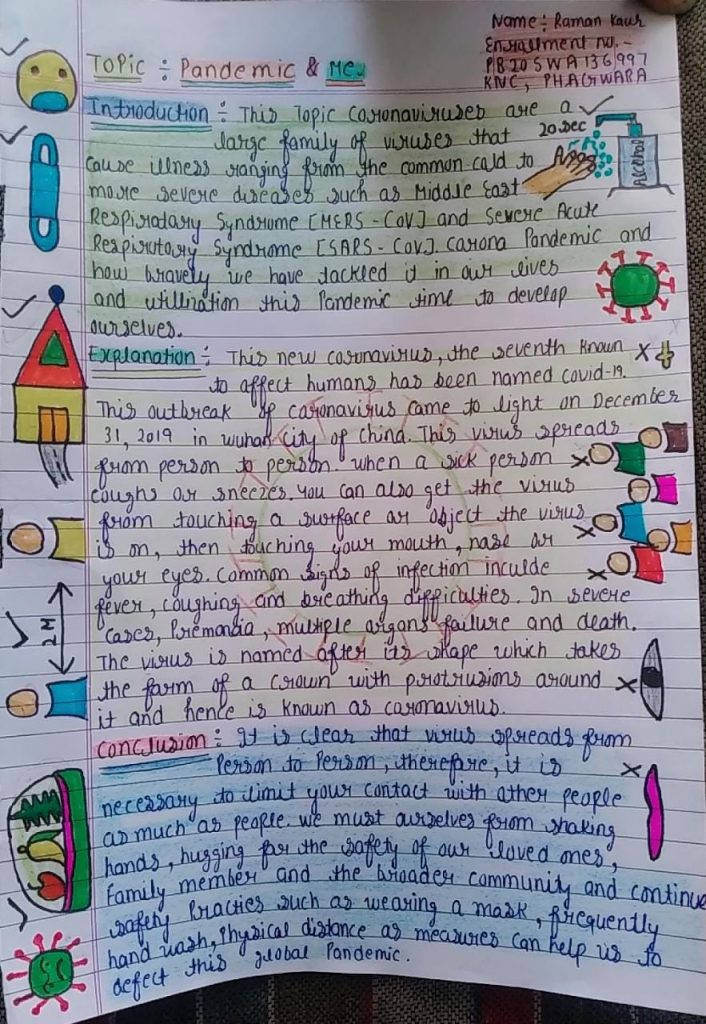 Name :- Raman Kaur
Enrallment no. -
PB20SWA136997
KNC, PHAGWARA
Topic :- Pandemic & Me.
Introduction :- This Topic caronaviruses are a
large family of viruses that
20 sec
cause illness ranging from the common cald to
Alcohal
more severe diseases such as Middle East
Respiratary Syndrome [MERS - CoV] and Severe Acute
Respirutory Syndrome [SARS - CoV]. carona Pandemic and
how bravely we have tackled it in our lives
and utilization this Pandemic time to develop
ourselves.
Explanation :- This new coronavirus, the seventh known
to affect humans has been named covid-19.
This outbreak of caronavirus came to light on December
31, 2019 in wuhan city of china. This virus spreads
from person to person. when a sick person
coughs or sneezes. you can also get the virus
from touching a surface ar object the virus
is on, then touching your mouth, nase ar
your eyes. Common signs of infection inculde
fever, coughing and breathing difficulties. In severe
2 M
cases, Premonia, multiple argans failure and death.
The virus is named after its shape which takes
the farm of a crown with protrusions around
it and hence is known as caronavirus.
Conclusion :- It is clear that virus spreads from
Person to Person, therefare, it is
necessary to limit your contact with ather people
as much as people. we must aurselves from shaking
hands, hugging far the safety of our loved ones,
family member and the broader community and continue
safety Practies such as wearing a mask, frequently
hand wash, Physical distance as measures can help us to
defect this global Pandemic.